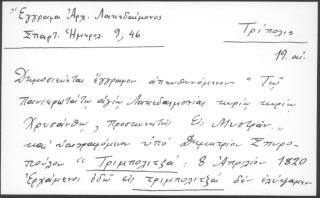 Ἔγγραφα Ἀρχ. Λακεδαίμονος
Σπαρτ. Ἡμερολ. 9, 46
Τρίπολις
19. αἰ.
Δημοσιεύεται ἔγγραφον ἀπευθυνόμενον "Τῷ
πανιερωτάτῳ ἁγίῳ Λακεδαιμονίας κυρίῳ κυρίῳ
Χρυσάνθῳ, προσκυνητῶς Εἰς Μυστρᾶν."
καὶ ὑπογραφόμενον ὑπὸ Δημητρίου Σπυρο-
πούλου "Τριμπολιτζᾶ: 8 Ἀπριλίου 1820
Ἐρχάμενοι ἐδῶ εἰς τριμπολιτζᾶ δὲν